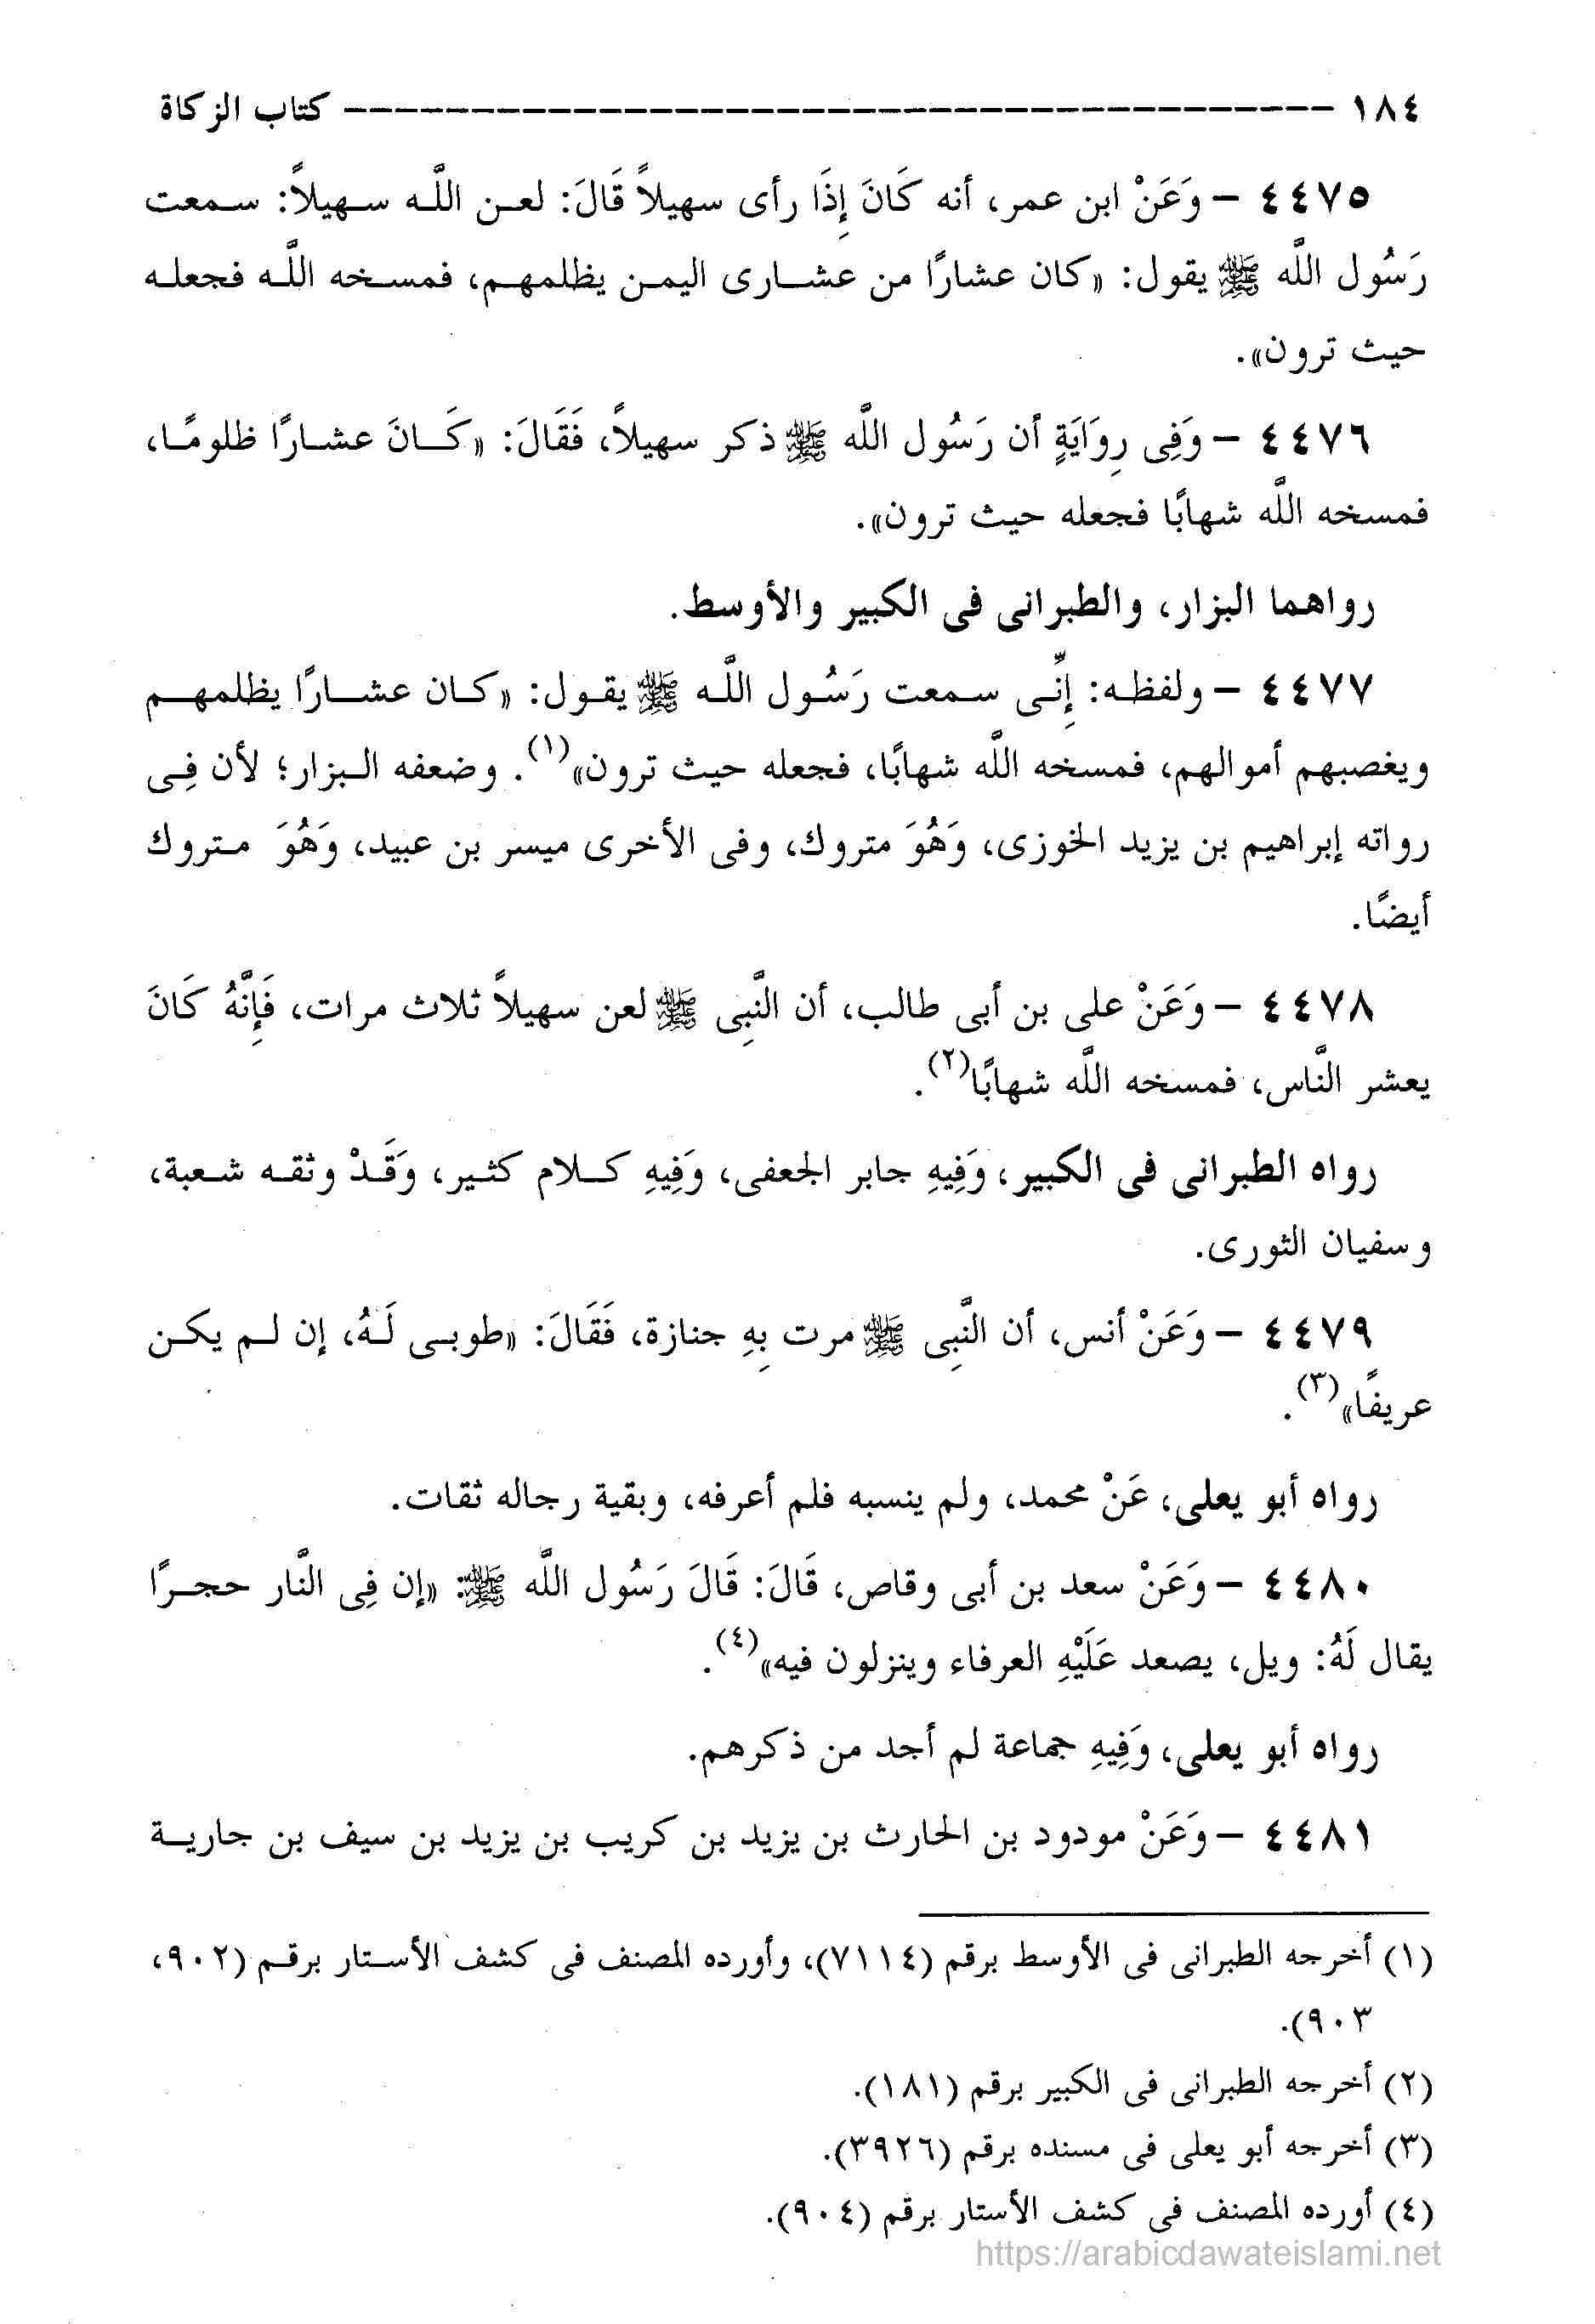 ١٨٤ ـــــــــــــــــــــــــــــــــــــــــــــــــــــــــــ كتاب الزكاة
٤٤٧٥ – وَعَنْ ابن عمر، أنه كَانَ إِذَا رأى سهيلاً قَالَ: لعن اللَّه سهيلاً: سمعت
رَسُول اللَّه ﷺ يقول: «كان عشارًا من عشارى اليمن يظلمهم، فمسخه اللَّه فجعله
حيث ترون».
٤٤٧٦ – وَفِى رِوَايَةٍ أن رَسُول اللَّه ﷺ ذكر سهيلاً، فَقَالَ: «كَانَ عشارًا ظلومًا،
فمسخه اللَّه شهابًا فجعله حيث ترون».
رواهما البزار، والطبرانى فى الكبير والأوسط.
٤٤٧٧ – ولفظه: إِنِّى سمعت رَسُول اللَّه ﷺ يقول: «كان عشارًا يظلمهم
ويغصبهم أموالهم، فمسخه اللَّه شهابًا، فجعله حيث ترون»(١). وضعفه البزار؛ لأن فِى
رواته إبراهيم بن يزيد الخوزى، وَهُوَ متروك، وفى الأخرى ميسر بن عبيد، وَهُوَ متروك
أيضًا.
٤٤٧٨ – وَعَنْ على بن أبى طالب، أن النَّبِى ﷺ لعن سهيلاً ثلاث مرات، فَإِنَّهُ كَانَ
يعشر النَّاس، فمسخه اللَّه شهابًا(٢).
رواه الطبرانى فى الكبير، وَفِيهِ جابر الجعفى، وَفِيهِ كلام كثير، وَقَدْ وثقه شعبة،
وسفيان الثورى.
٤٤٧٩ – وَعَنْ أنس، أن النَّبِى ﷺ مرت بِهِ جنازة، فَقَالَ: «طوبى لَهُ، إن لم يكن
عريفًا»(٣).
رواه أبو يعلى، عَنْ محمد، ولم ينسبه فلم أعرفه، وبقية رجاله ثقات.
٤٤٨٠ – وَعَنْ سعد بن أبى وقاص، قَالَ: قَالَ رَسُول اللَّه ﷺ: «إن فِى النَّار حجرًا
يقال لَهُ: ويل، يصعد عَلَيْهِ العرفاء وينزلون فيه»(٤).
رواه أبو يعلى، وَفِيهِ جماعة لم أجد من ذكرهم.
٤٤٨١ – وَعَنْ مودود بن الحارث بن يزيد بن كريب بن يزيد بن سيف بن جارية
(١) أخرجه الطبرانى فى الأوسط برقم (٧١١٤)، وأورده المصنف فى كشف الأستار برقم (٩٠٢،
٩٠٣).
(٢) أخرجه الطبرانى فى الكبير برقم (١٨١).
(٣) أخرجه أبو يعلى فى مسنده برقم (٣٩٢٦).
(٤) أورده المصنف فى كشف الأستار برقم (٩٠٤).
https://arabicdawateislami.net